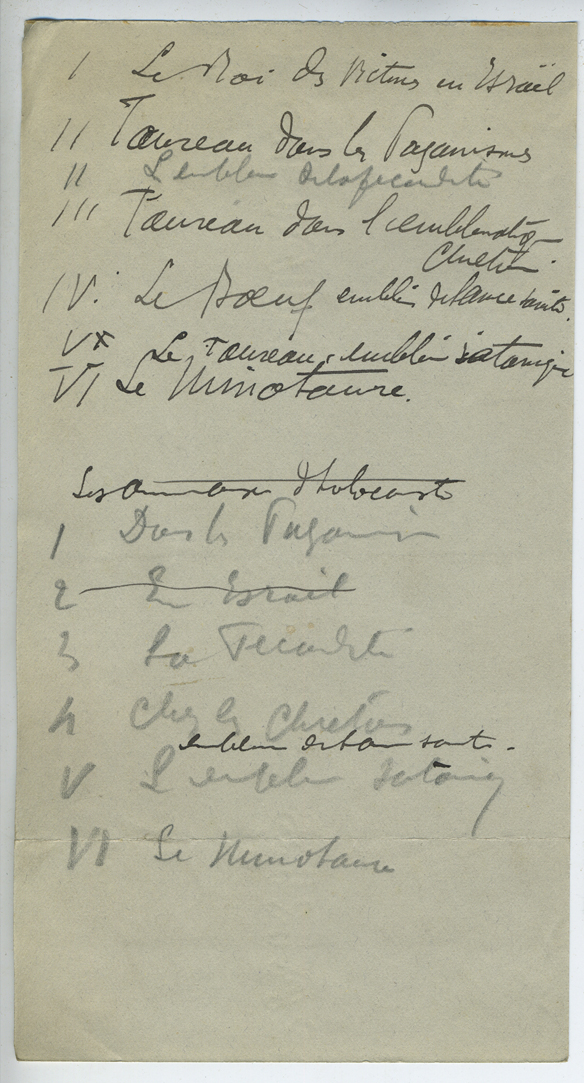 I Le Roi des Victimes en Israël
II Taureau dans les Paganismes
II L'emblème de la fécondité
III Taureau dans l'emblématiq
Chrétien.
IV. Le Bœuf emblème de l'ame sainte.
V× Le Taureau, emblème satanique
VI Le Minotaure.
Les animaux d'holocauste
1 Dans les Paganism
2 En Israël
3 La Fécondité
4 Chez les Chrétiens
emblem de l'am sainte.
V L'emblem sataniq
VI Le Minotaure